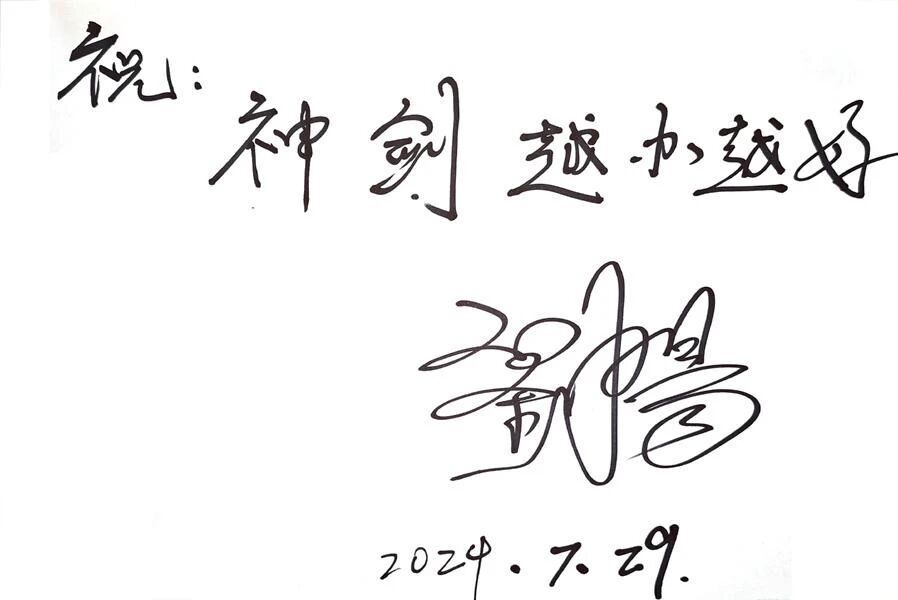 祝:
神剑越办越好
2024.7.29.